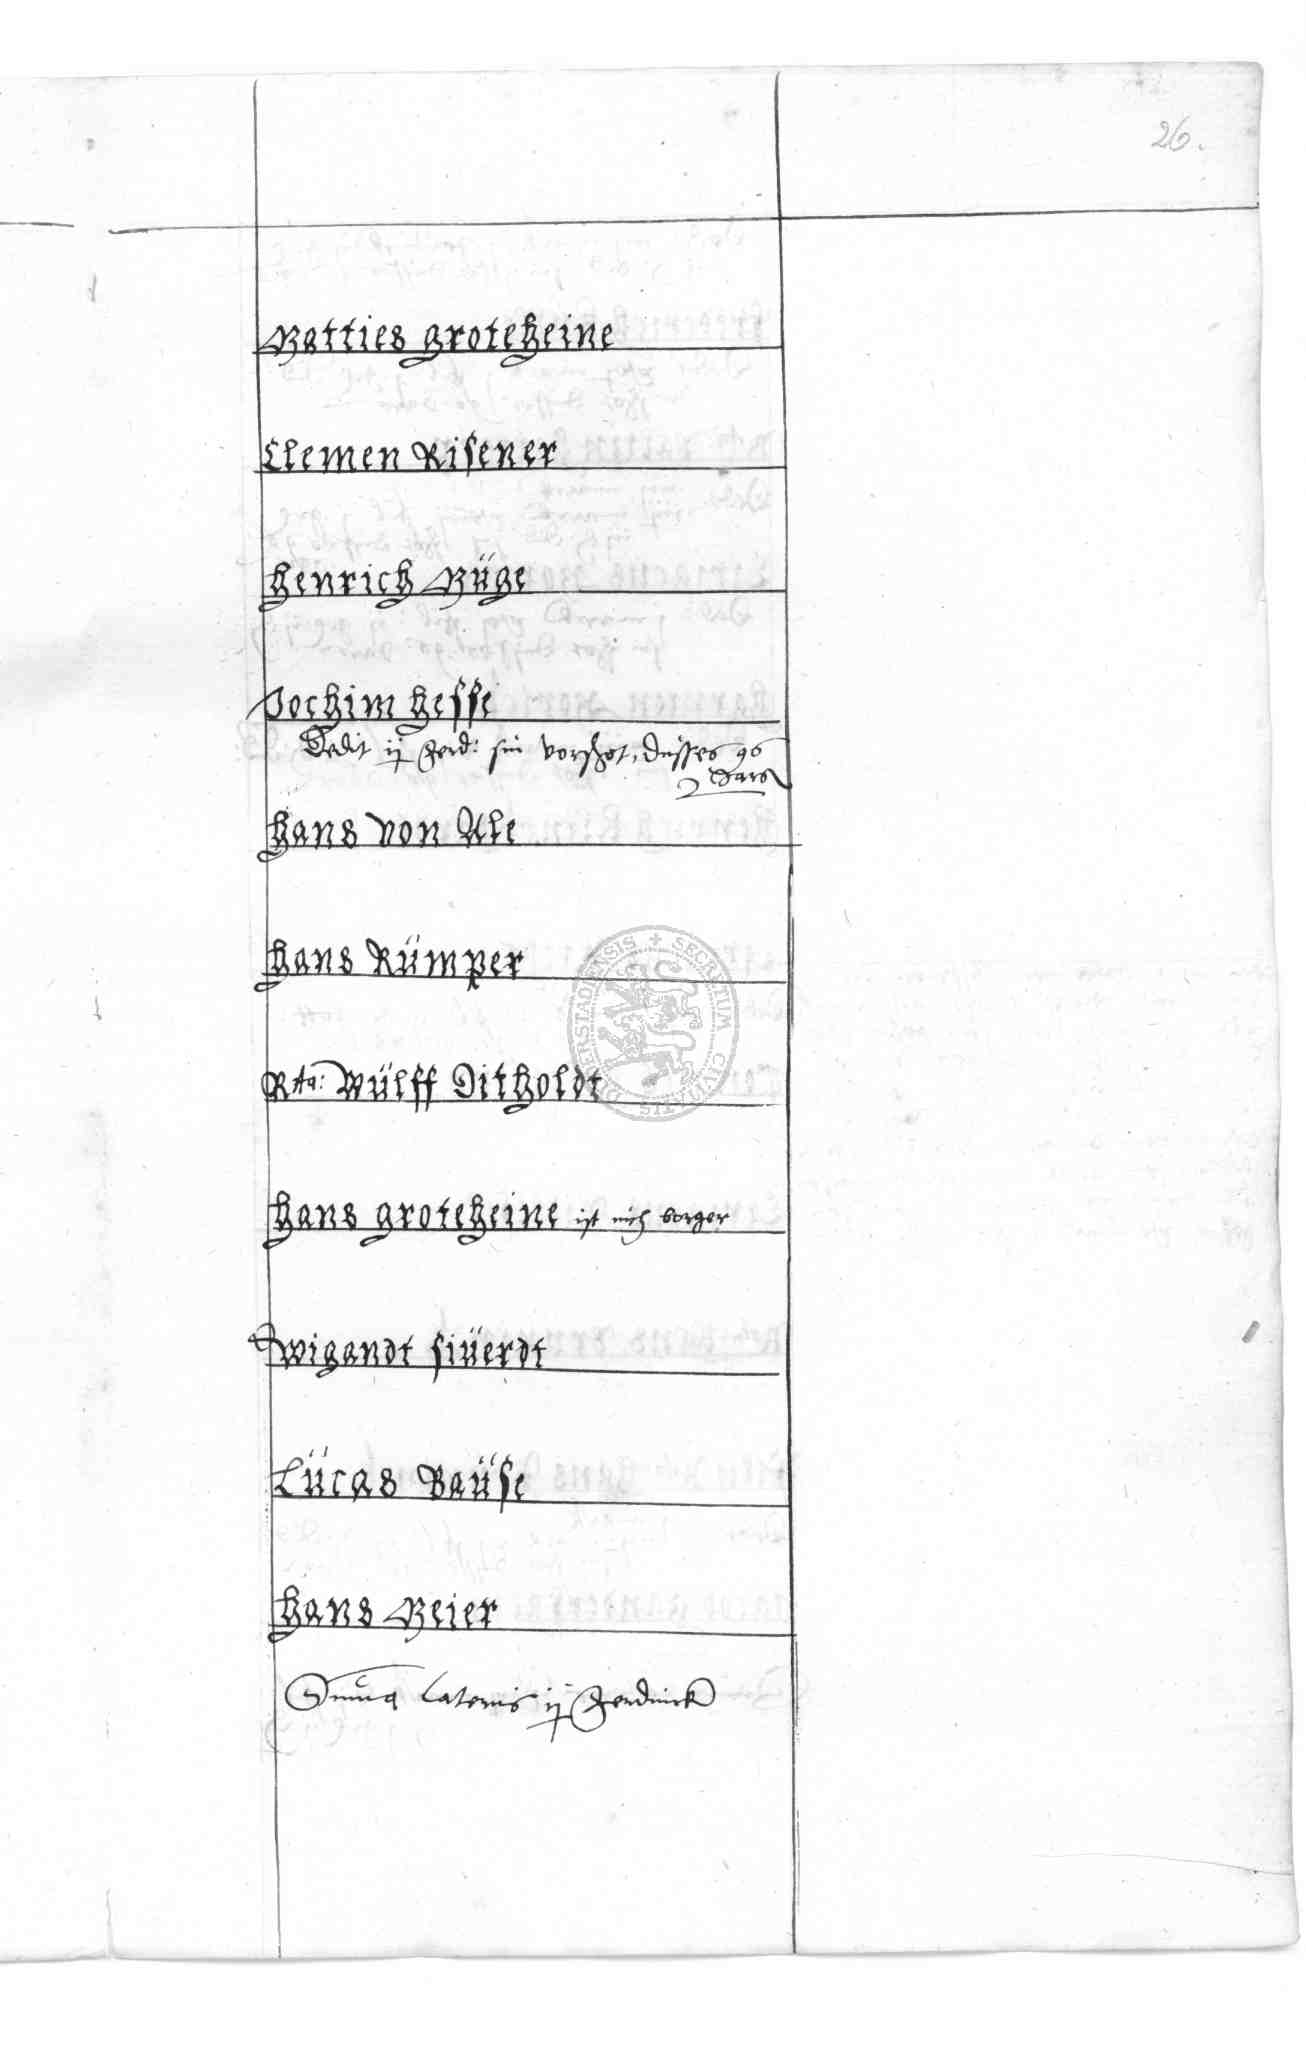 26.
Matties groteheine
Clemen Risener
henrich Müge
Jochim hesse
Dedit ij ferd: sin vorschot, düsses 96
Jars
hans von Ule
hans Rümper
Rta: Wülff Ditholdt
hans groteheine ist nich borger
Wigandt siüerdt
Lücas Baüse
hans Meier
Suma Lateris ij ferdinck
SECRETUM CIVITATIS DUDERSTADIENSIS